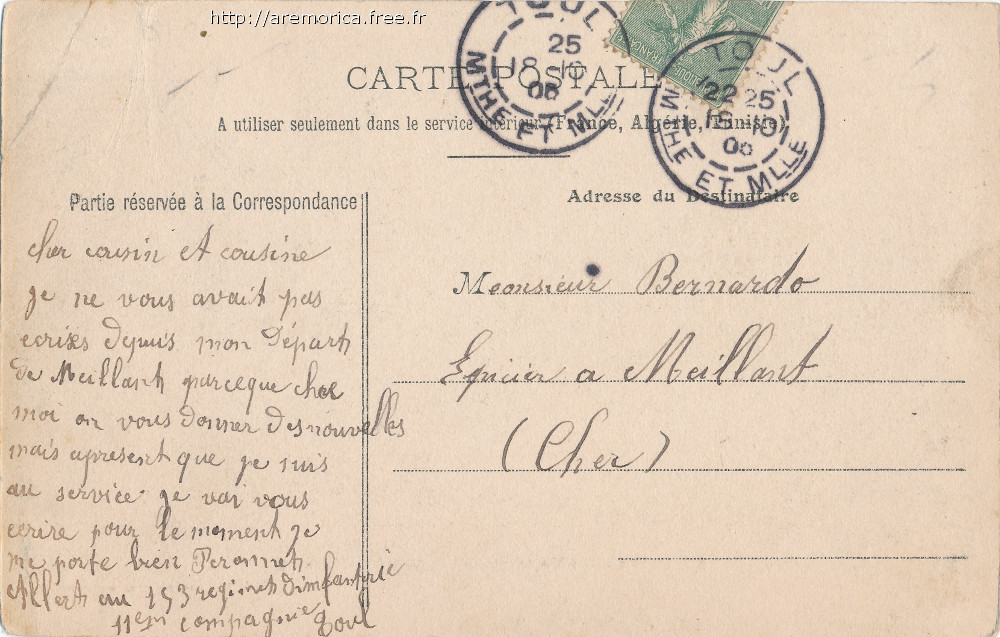 http://aremorica.free.fr
CARTE POSTALE
A utiliser seulement dans le service intérieur (France, Algérie, Tunisie)
TOUL
25
18 -10
06
MTHE ET MLLE
TOUL
22 25
18 -10
06
MTHE ET MLLE
Partie réservée à la Correspondance
Adresse du Destinataire
cher cousin et cousine
je ne vous avait pas
ecrises depuis mon Départ
de Meillant parceque chez
moi on vous donner des nouvelles
mais apresent que je suis
au service je vai vous
ecrire pour le moment je
me porte bien Peronnet
Albert au 153 regiment dinfanterie
11em compagnie Toul
Monsieur Bernardo
Epicier a Meillant
(Cher)